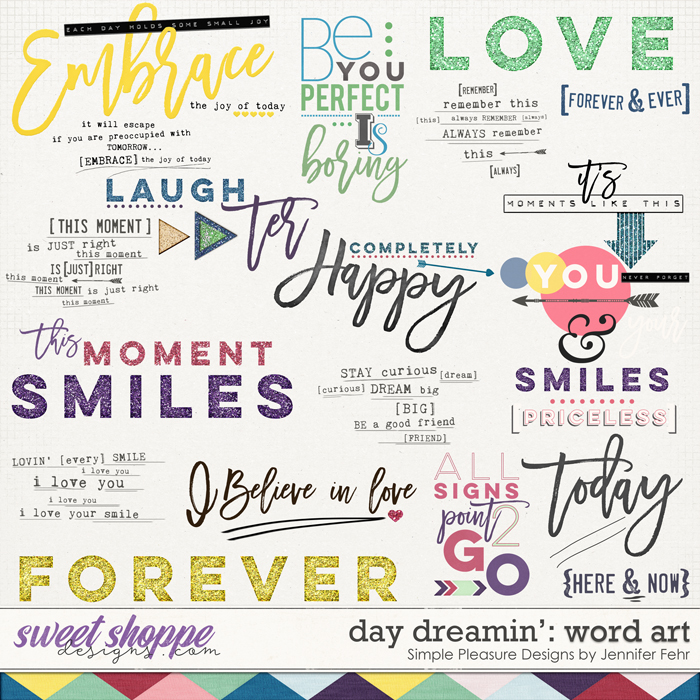 EACH DAY HOLDS SOME SMALL JOY
Embrace
the joy of today
it will escape
if you are preoccupied with
TOMORROW...
[EMBRACE] the joy of today
Be
YOU
PERFECT
IS
boring
LOVE
[REMEMBER]
remember this
[this] always REMEMBER [always]
ALWAYS remember
this
[ALWAYS]
[FOREVER & EVER]
LAUGH
ter
[THIS MOMENT]
is JUST right
this moment
IS[JUST]RIGHT
this moment
THIS MOMENT is just right
this moment
COMPLETELY
Happy
it's
MOMENTS LIKE THIS
YOU
NEVER FORGET
&
your
SMILES
[PRICELESS]
this
MOMENT
SMILES
STAY curious [dream]
[curious] DREAM big
[BIG]
BE a good friend
[FRIEND]
LOVIN' [every] SMILE
i love you
i love you
i love you
i love your smile
I Believe in love
ALL
SIGNS
point 2
GO
today
{HERE & NOW}
FOREVER
sweet shoppe
designs.com
day dreamin': word art
Simple Pleasure Designs by Jennifer Fehr